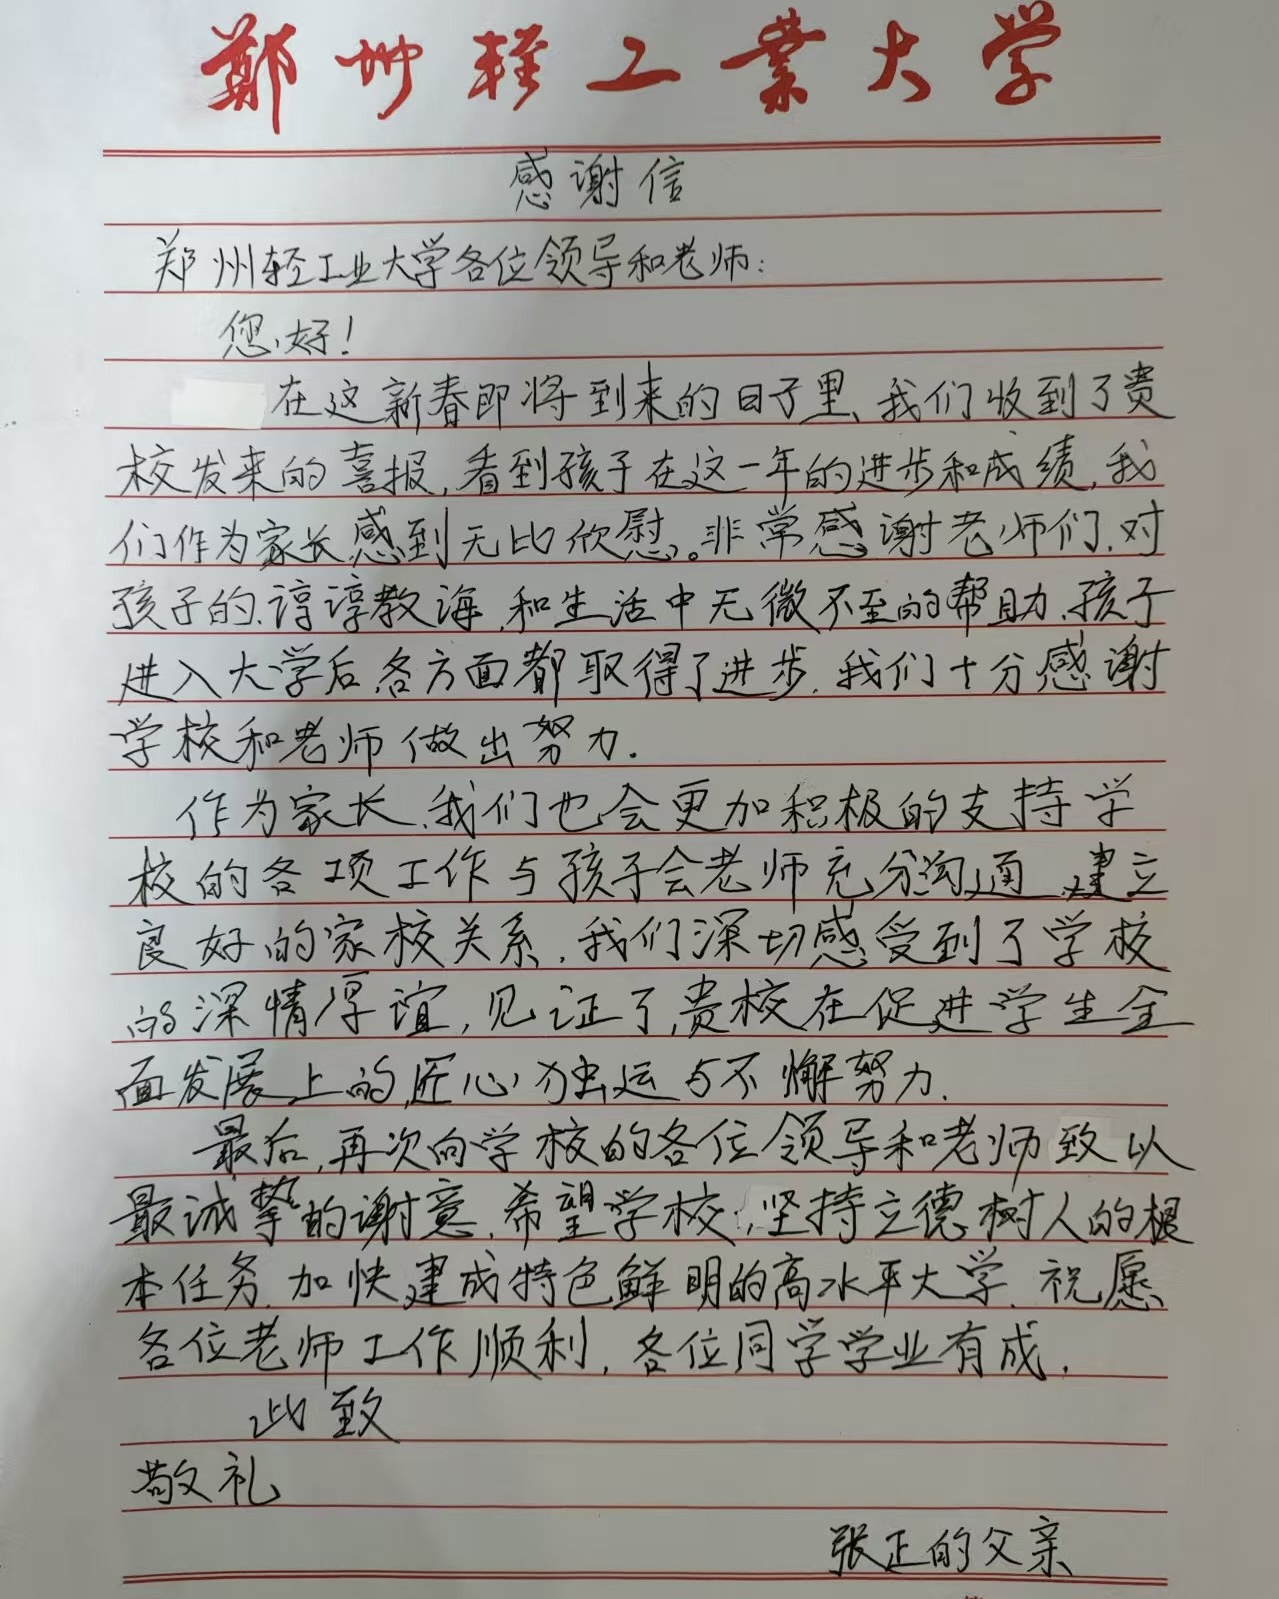 鄭州輕工業大学
感谢信
郑州轻工业大学各位领导和老师:
您好!
在这新春即将到来的日子里、我们收到了贵
校发来的喜报,看到孩子在这一年的进步和成绩,我
们作为家长感到无比欣慰。非常感谢老师们,对
孩子的谆谆教诲,和生活中无微不至的帮助,孩子
进入大学后,各方面都取得了进步,我们十分感谢
学校和老师做出努力.
作为家长,我们也会更加积极的支持学
校的各项工作与孩子会老师充分沟通,建立
良好的家校关系,我们深切感受到了学校
的深情厚谊,见证了,贵校在促进学生全
面发展上的,匠心独运与不懈努力.
最后,再次向学校的各位领导和老师致以
最诚挚的谢意,希望学校,坚持立德树人的根
本任务,加快建成特色鲜明的高水平大学,祝愿
各位老师工作顺利,各位同学学业有成,
此致
敬礼
张正的父亲